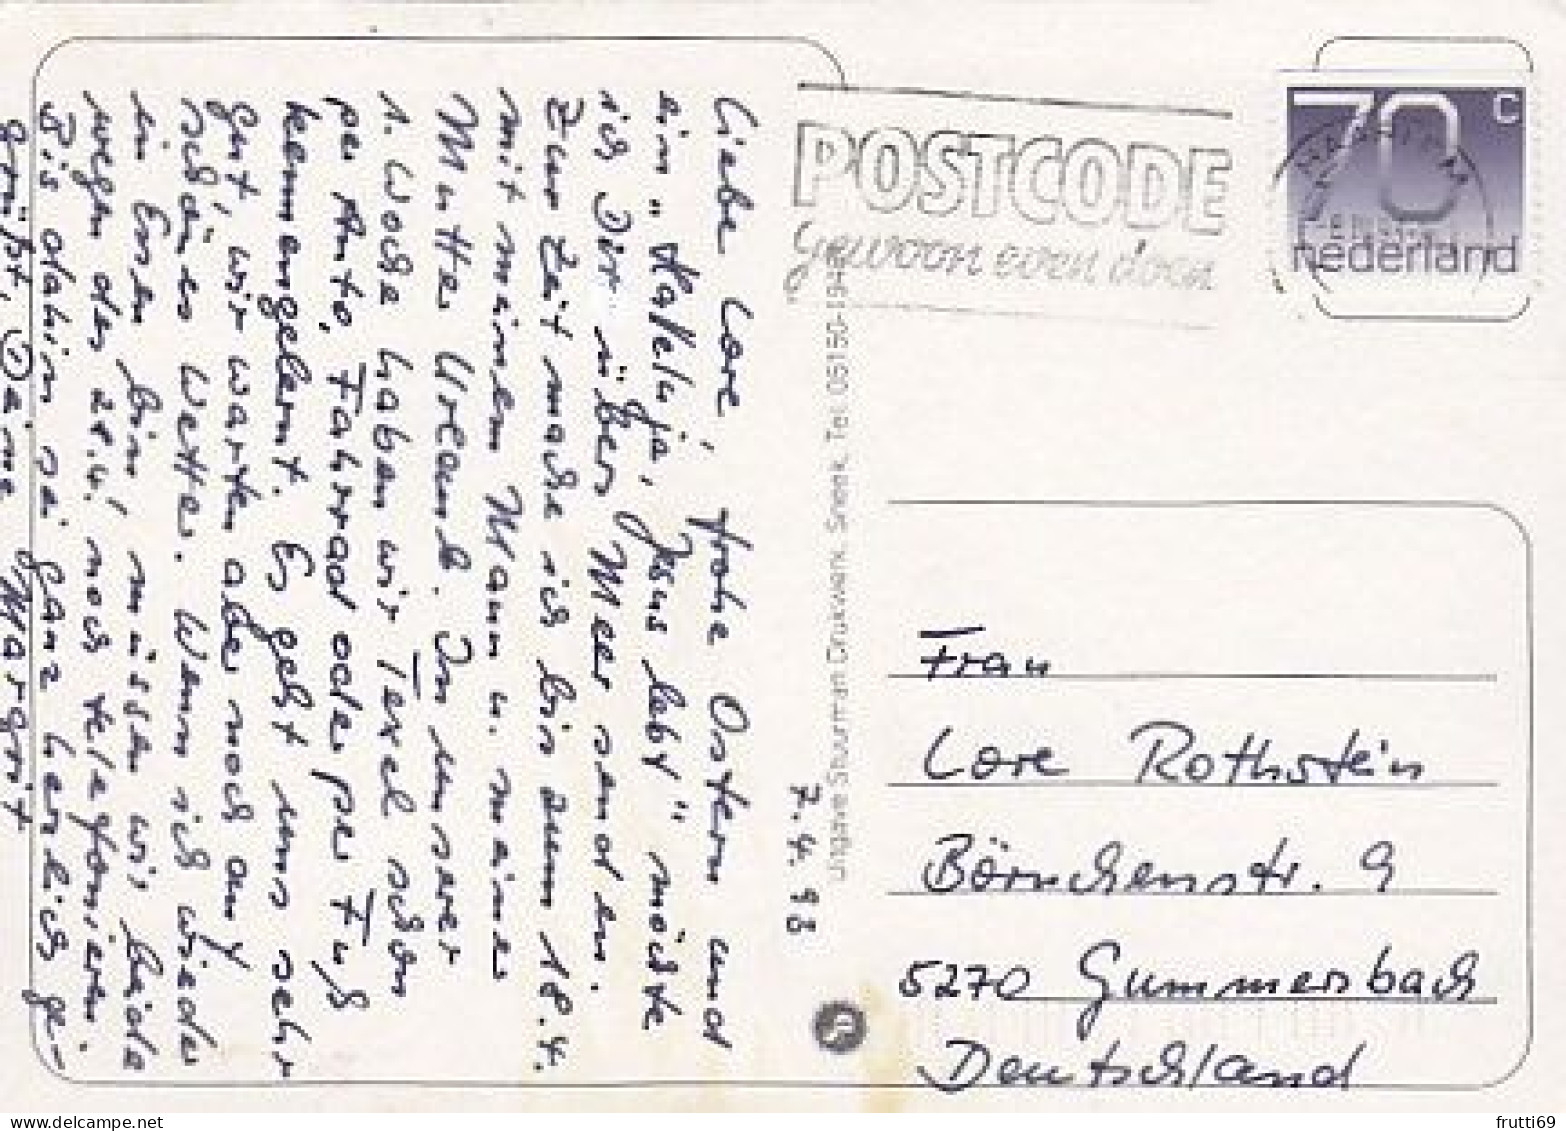 Liebe Lore, frohe Ostern und
ein "Halleluja, Jesus lebt" möchte
ich Dir übers Meer senden.
Zur Zeit mache ich bis zum 18.4.
mit meinem Mann u. meiner
Mutter Urlaub. In unserer
1. Woche haben wir Texel schon
per Auto, Fahrrad oder per Fuß
kennengelernt. Es geht uns sehr
gut, wir warten aber noch auf
schönes Wetter. Wenn ich wieder
in Engen bin, müssen wir beide
wegen des 28.4. noch telefonieren.
Bis dahin sei ganz herzlich ge-
grüßt, Deine Margrit
7.4.98
Uitgave Stuurman Drukwerk, Sneek, Tel. 05150-194
POSTCODE
gewoon even doen
70 c
nederland
Frau
Lore Rothstein
Börnchenstr. 9
5270 Gummersbach
Deutschland
frutti69